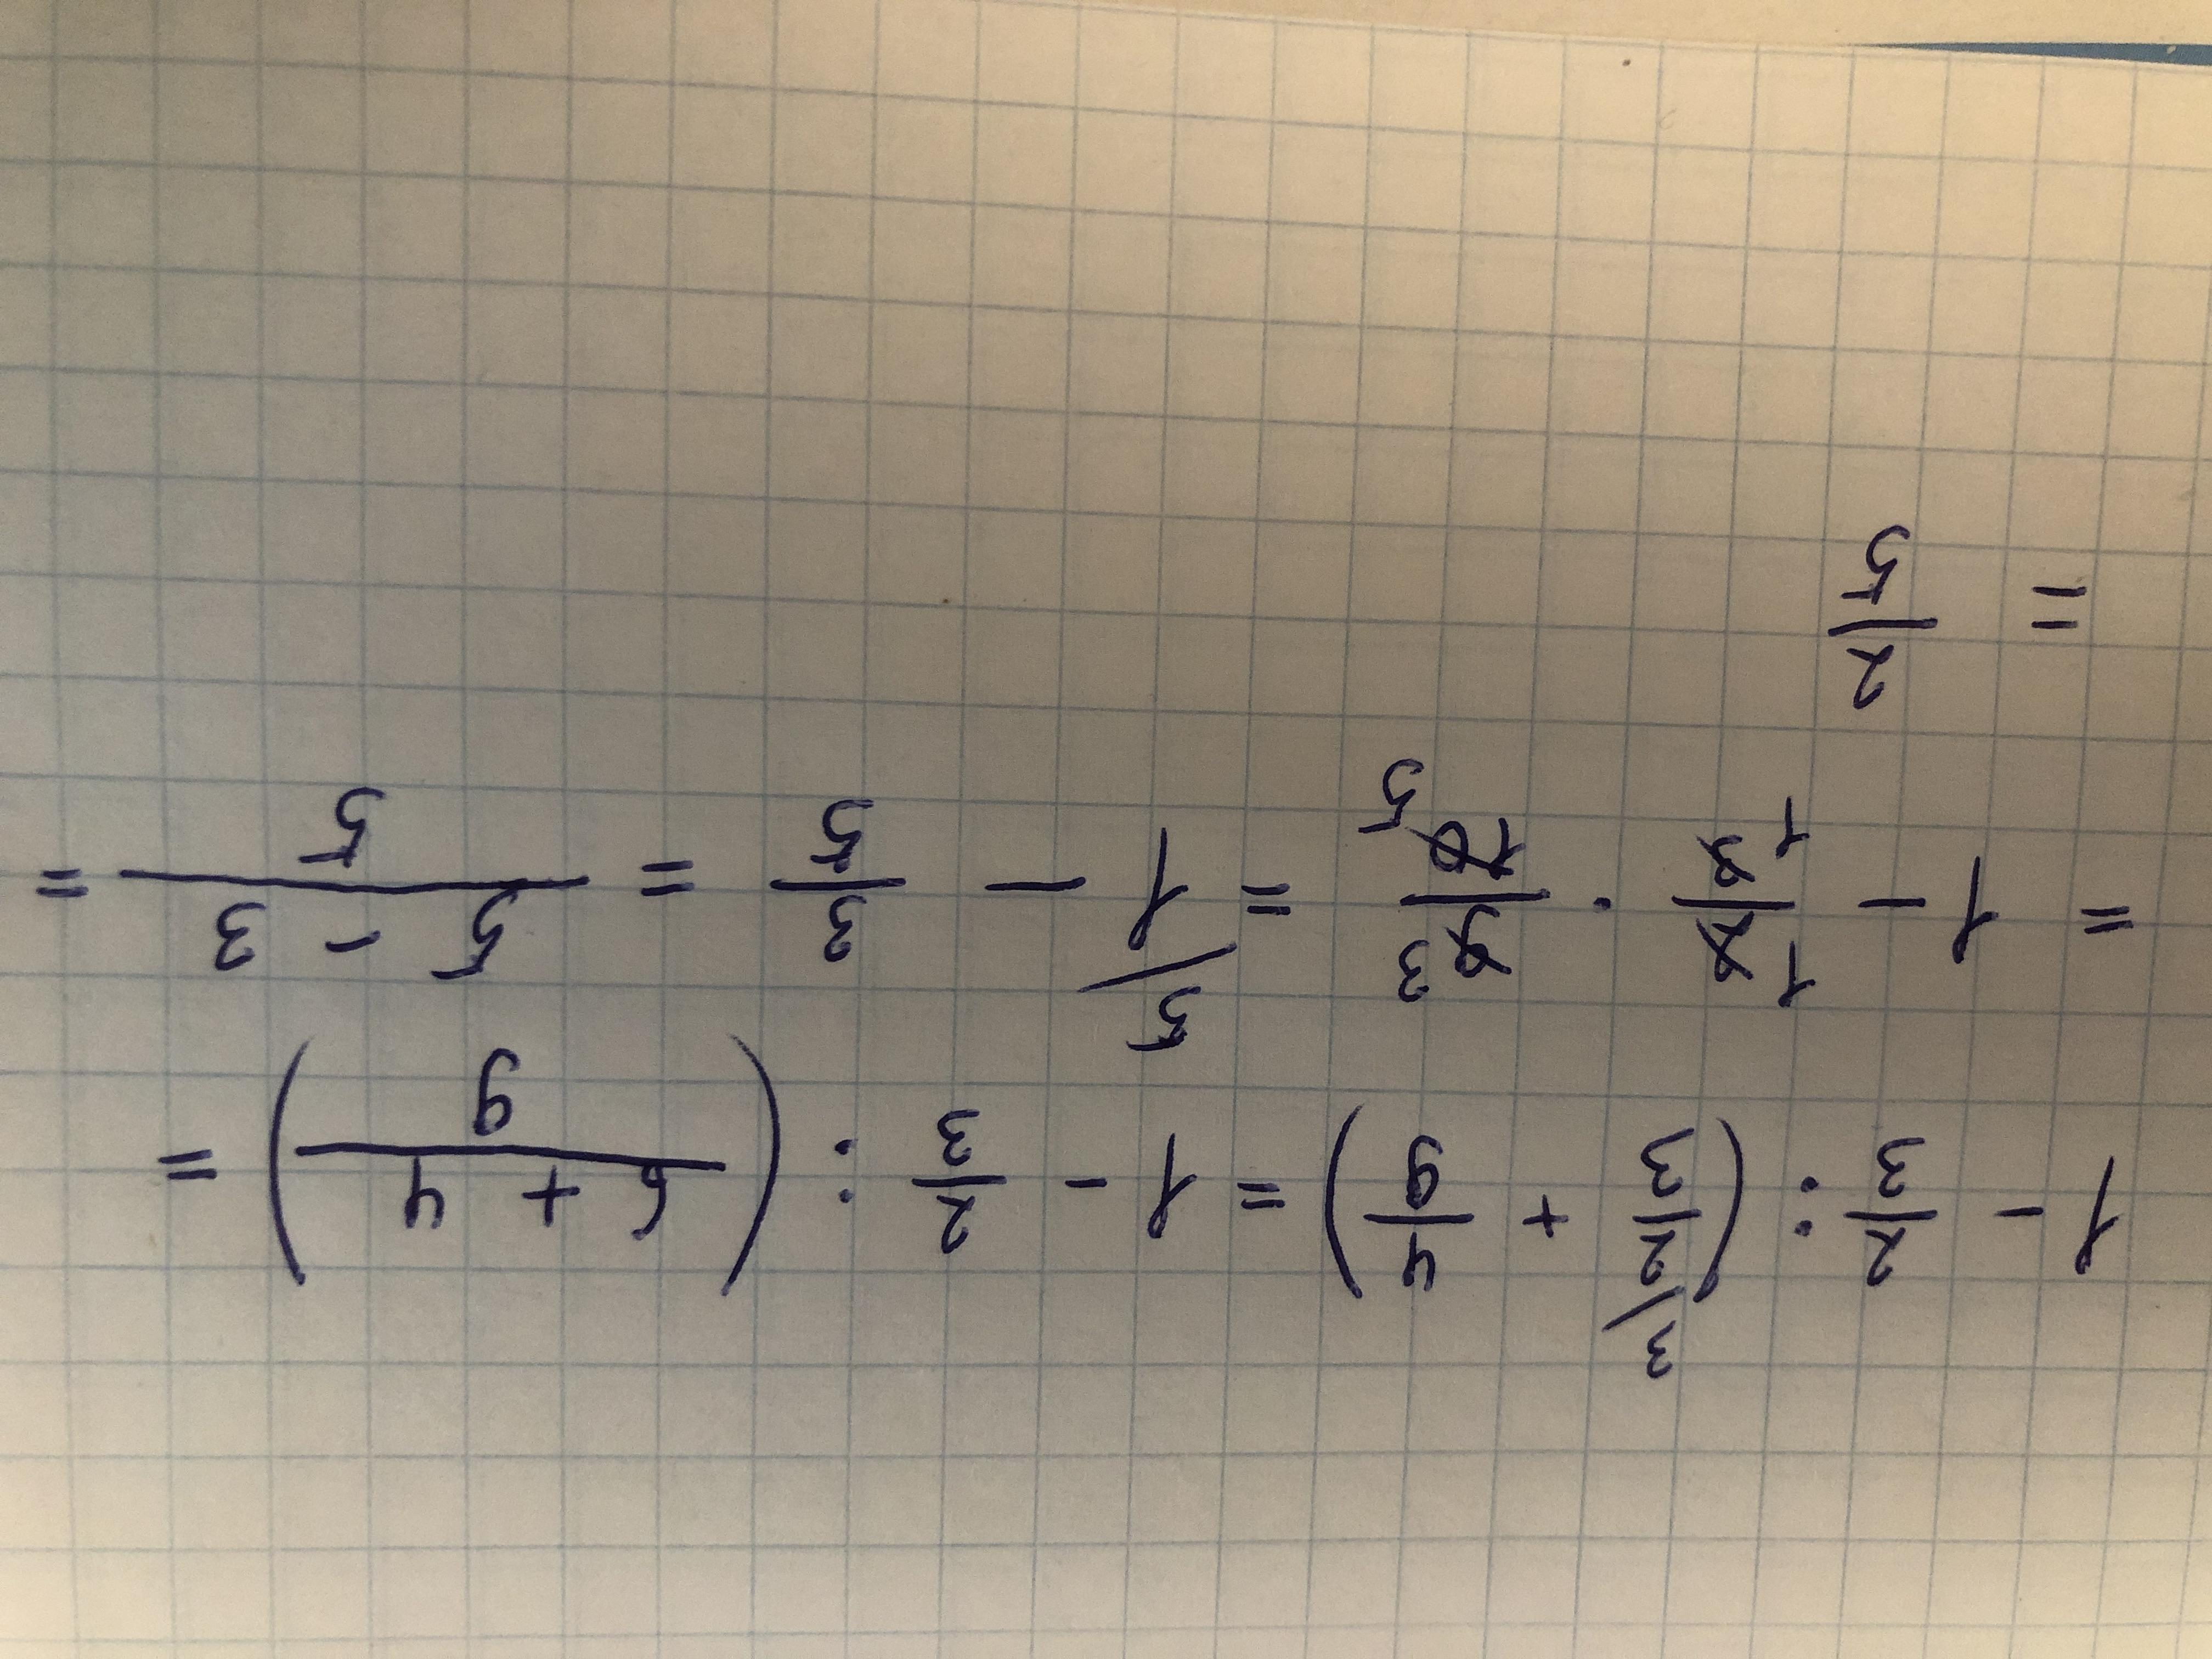 1 - 2/3 : (2/3 ³⁄ + 4/9) = 1 - 2/3 : ((6 + 4)/9) =
= 1 - 2¹/3₁ · 9³/10₅ = 1 ⁵⁄ - 3/5 = (5 - 3)/5 =
= 2/5